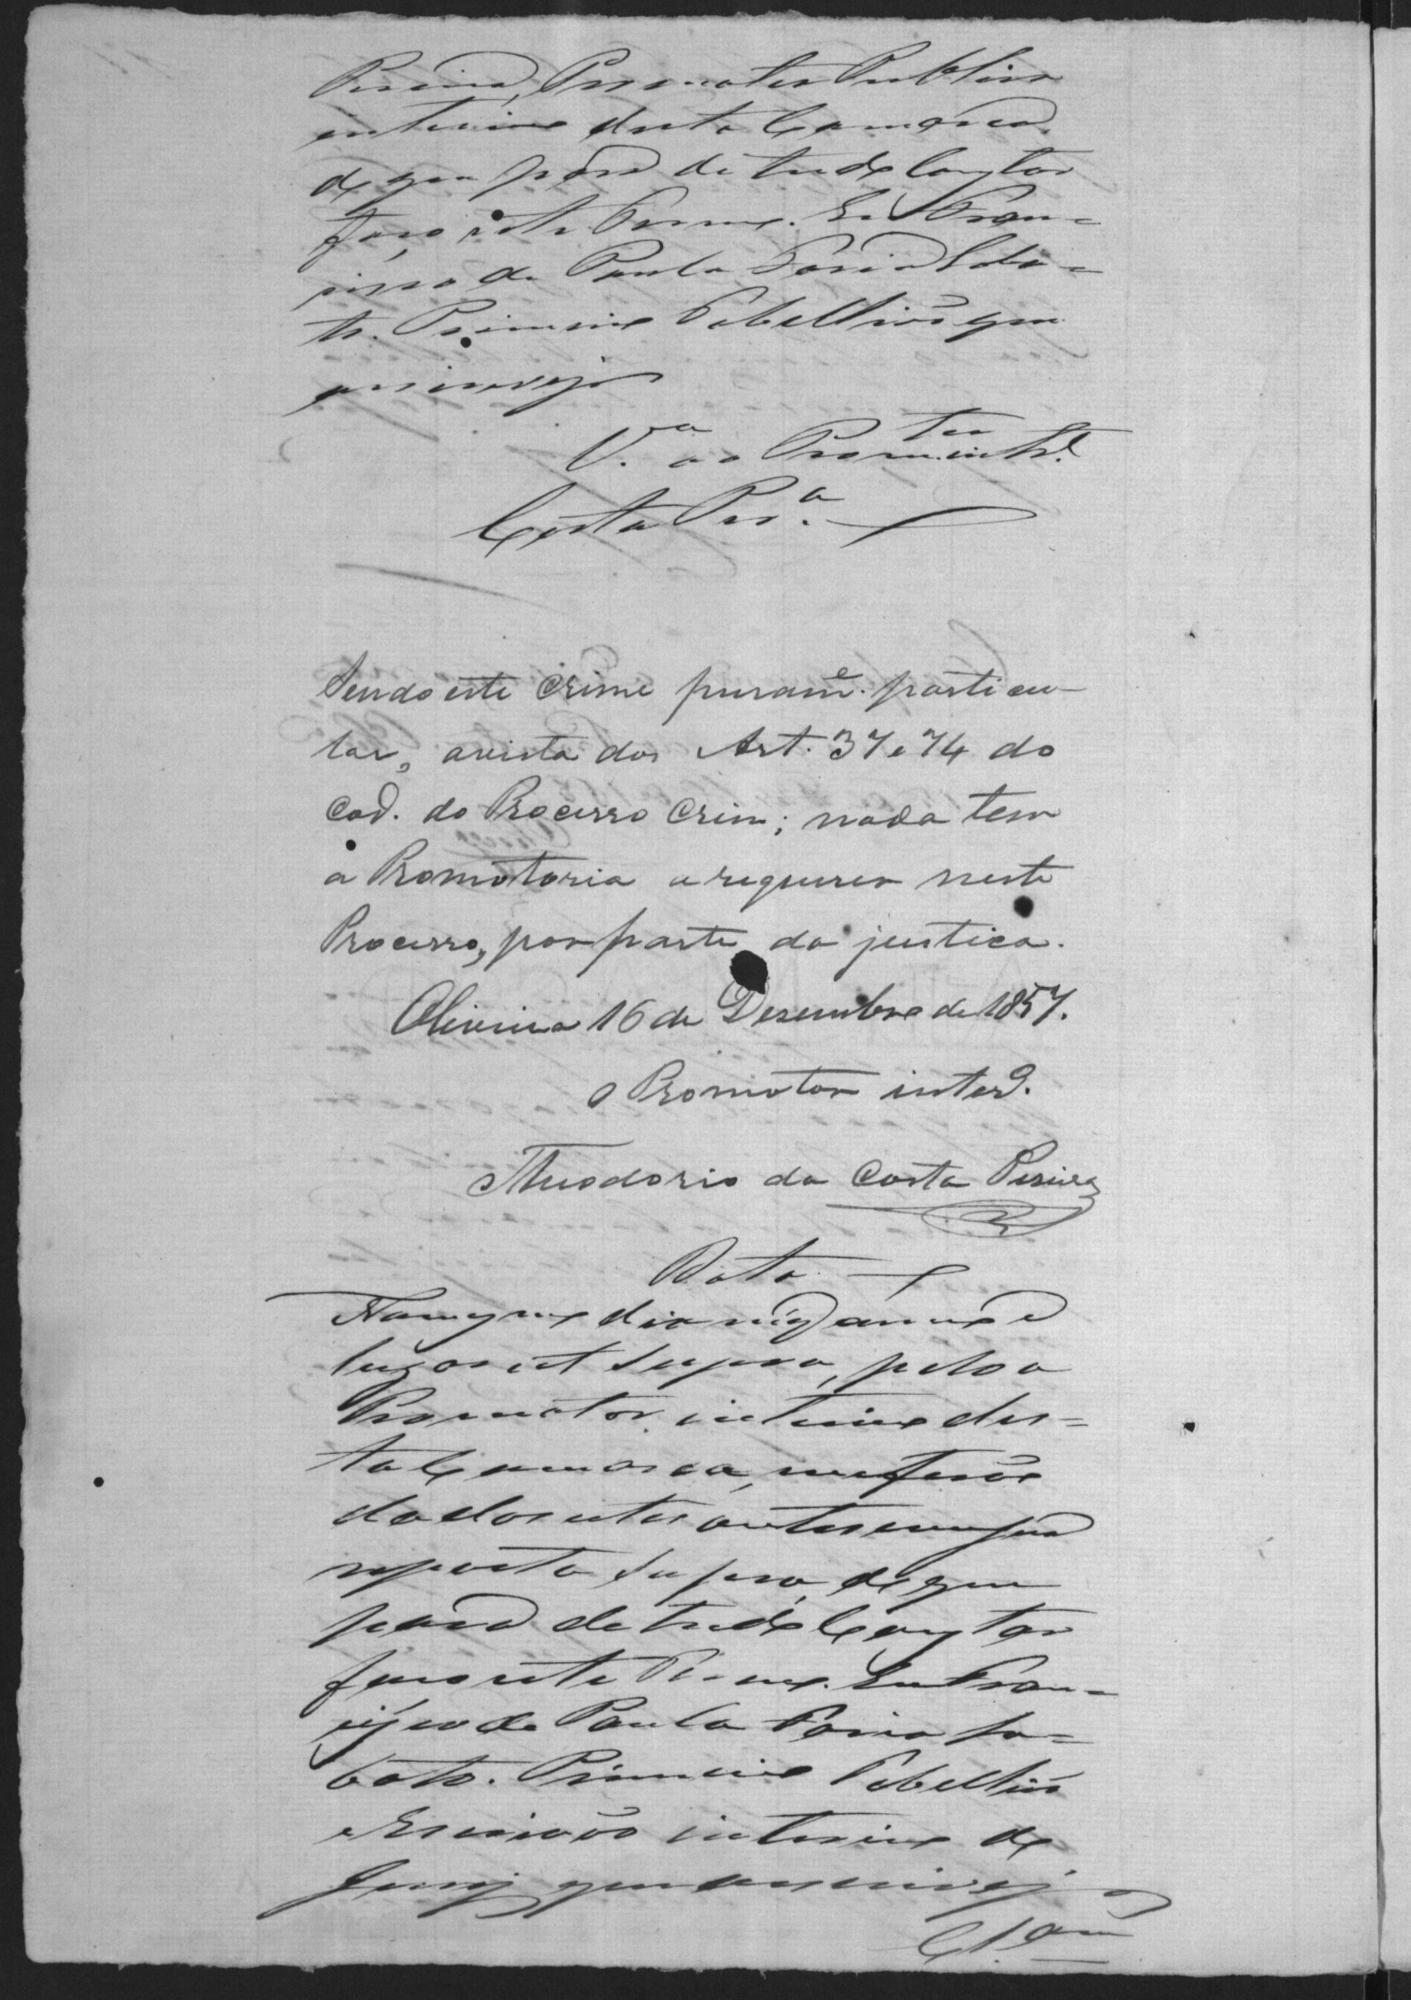 Pereira, Promotor Publico
interino desta Comarca,
de que para de tudo Constar
faço este Termo. Eu Fran=
cisco de Paula Faria Loba=
to. Primeiro Tabellião que
escrevi
V.ᵃ ao Promᵗᵒʳ int.º
Costa Per.ᵃ
Sendo este Crime puramᵉ. particu-
lar, avista dos Art. 37 e 74 do
Cod. do Processo Crim; nada tem
a Promotoria a requerer neste
Processo, por parte da justica.
Oliveira 16 de Desembro de 1857.
o Promotor intrº.
Theodorio da Costa Pereira
Data
No mesmo dia mez anno e
lugar ut supra, pelo
Promotor interino des=
ta Comarca, me forão
dados estes autos com sua
resposta supra, de que
para de tudo Constar
faço este Termo. Eu Fran=
cisco de Paula Faria Lo=
bato. Primeiro Tabellião
e Escrivão interino do
Jury que escrevi